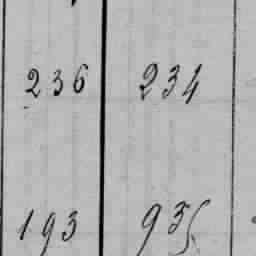 236 234
193 935